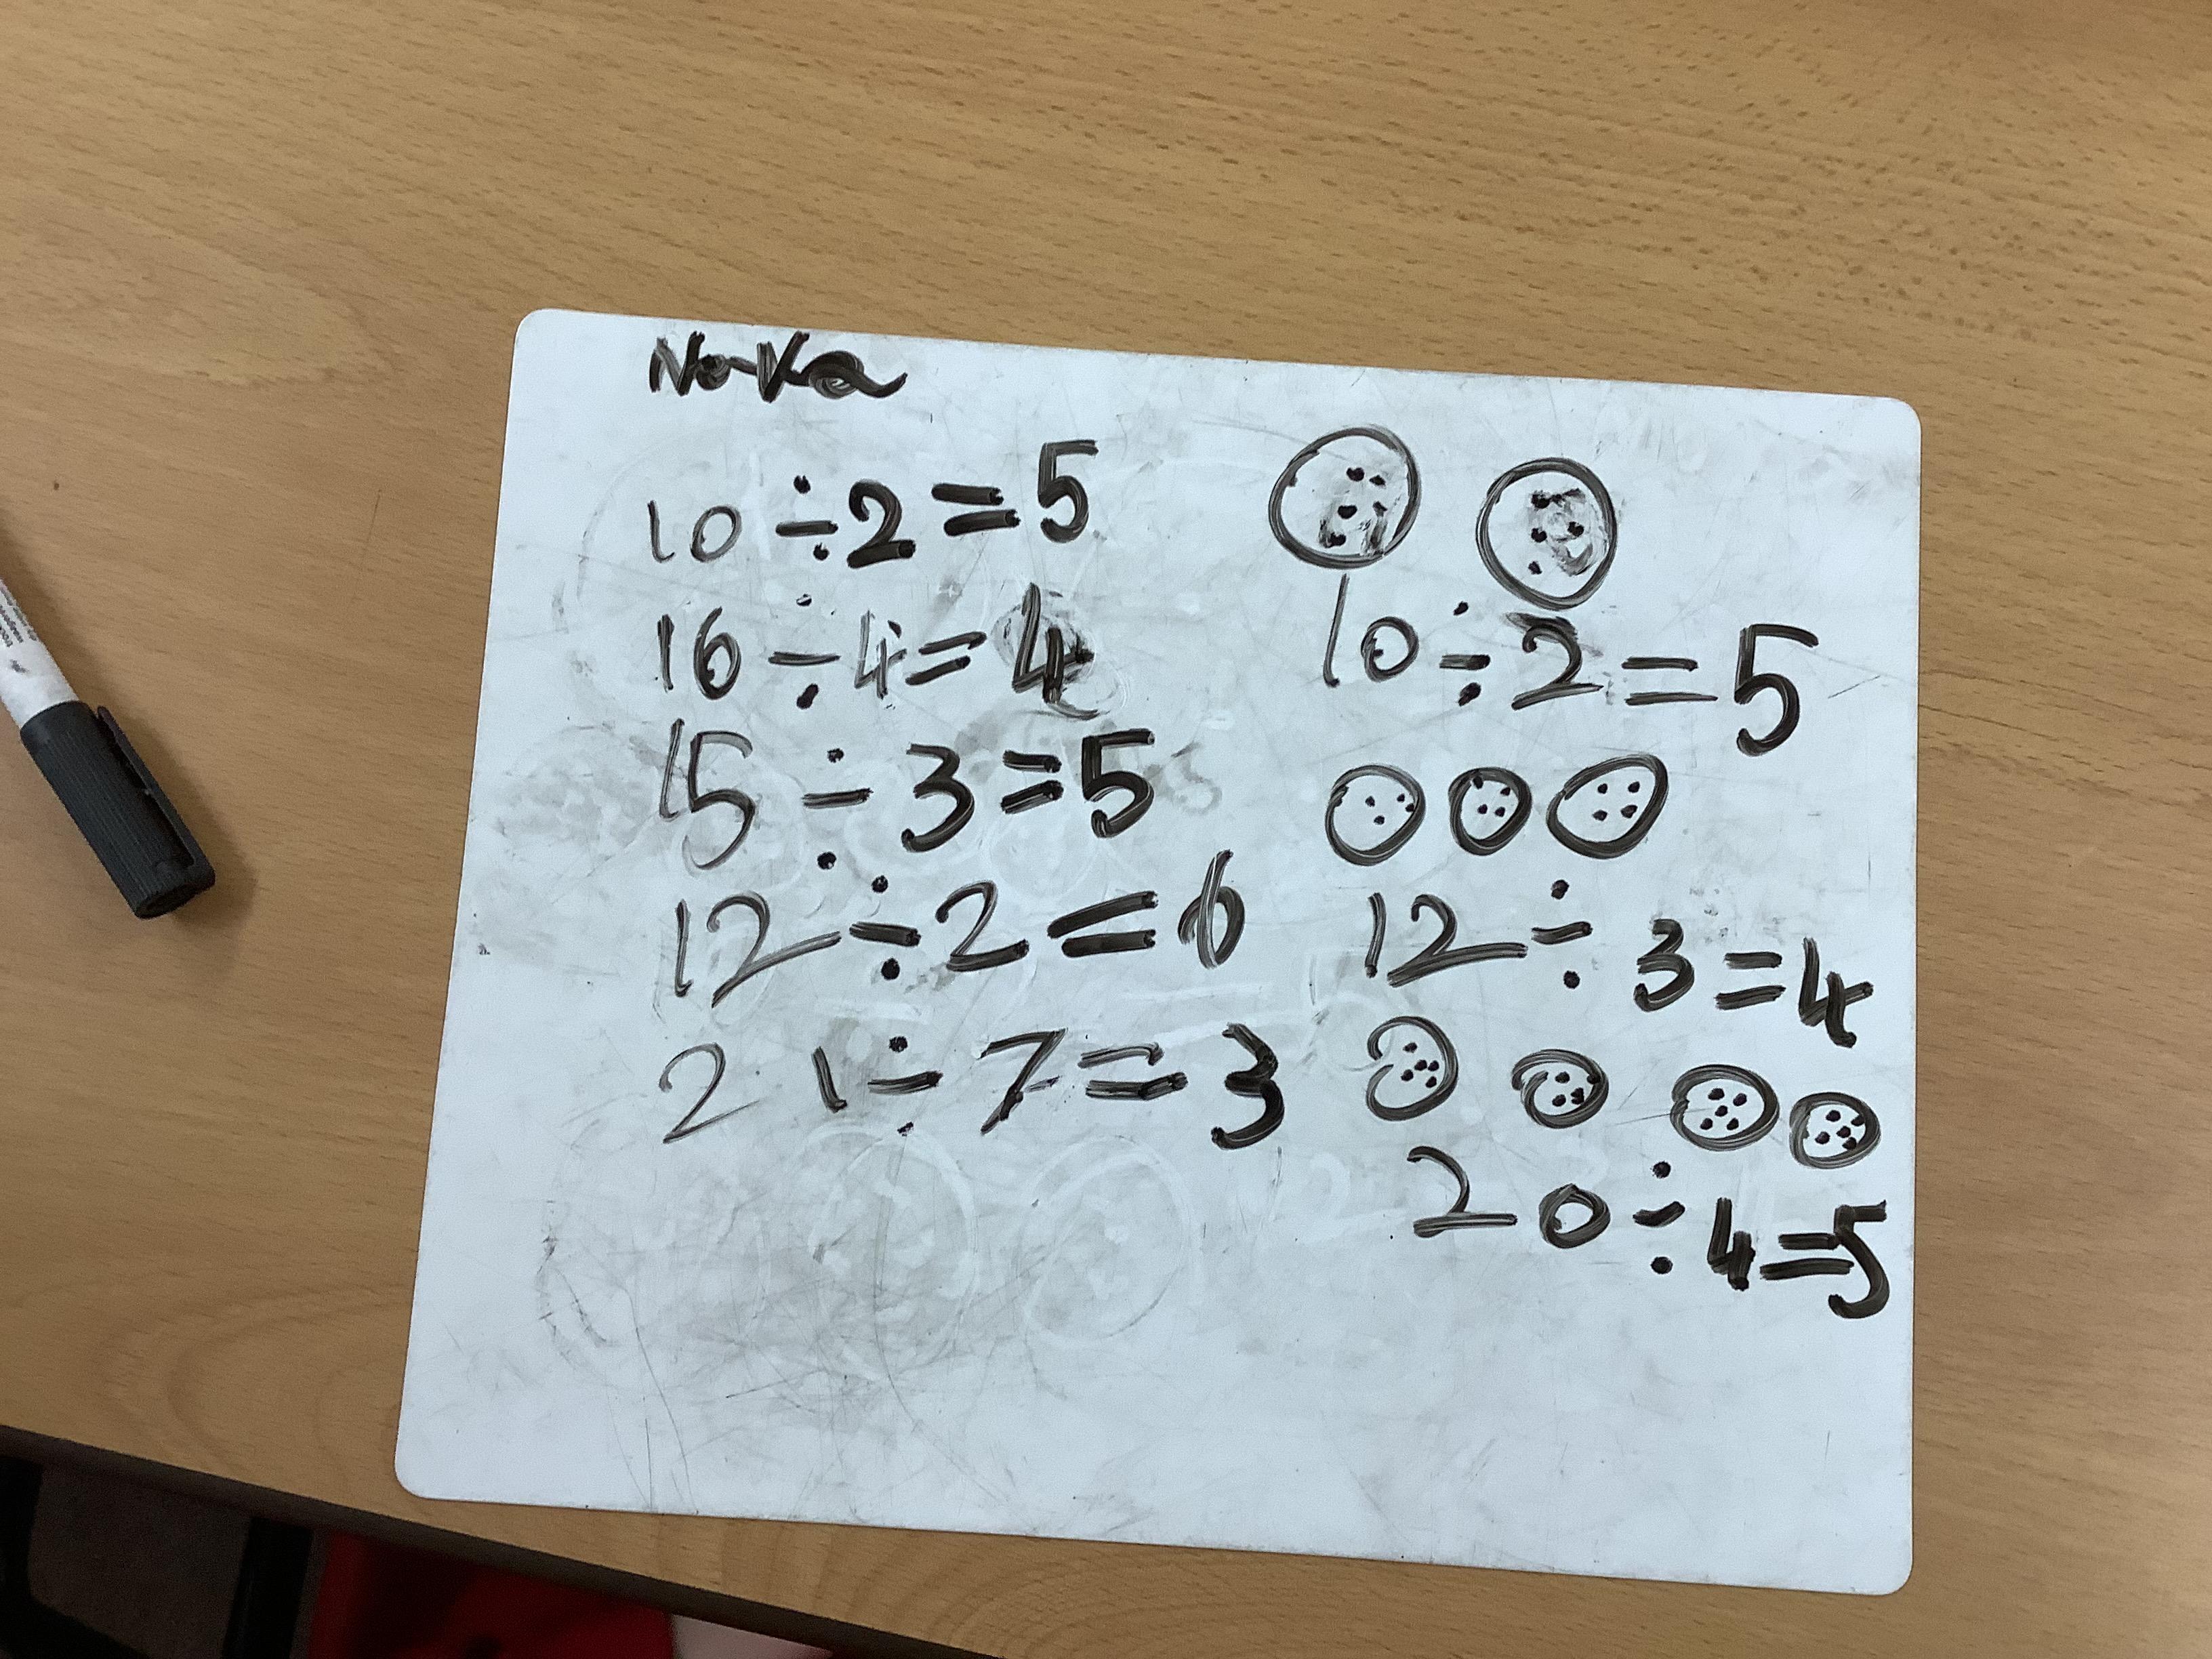 10 ÷ 2 = 5
16 ÷ 4 = 4
15 ÷ 3 = 5
12 ÷ 2 = 6
21 ÷ 7 = 3
10 ÷ 2 = 5
12 ÷ 3 = 4
20 ÷ 4 = 5